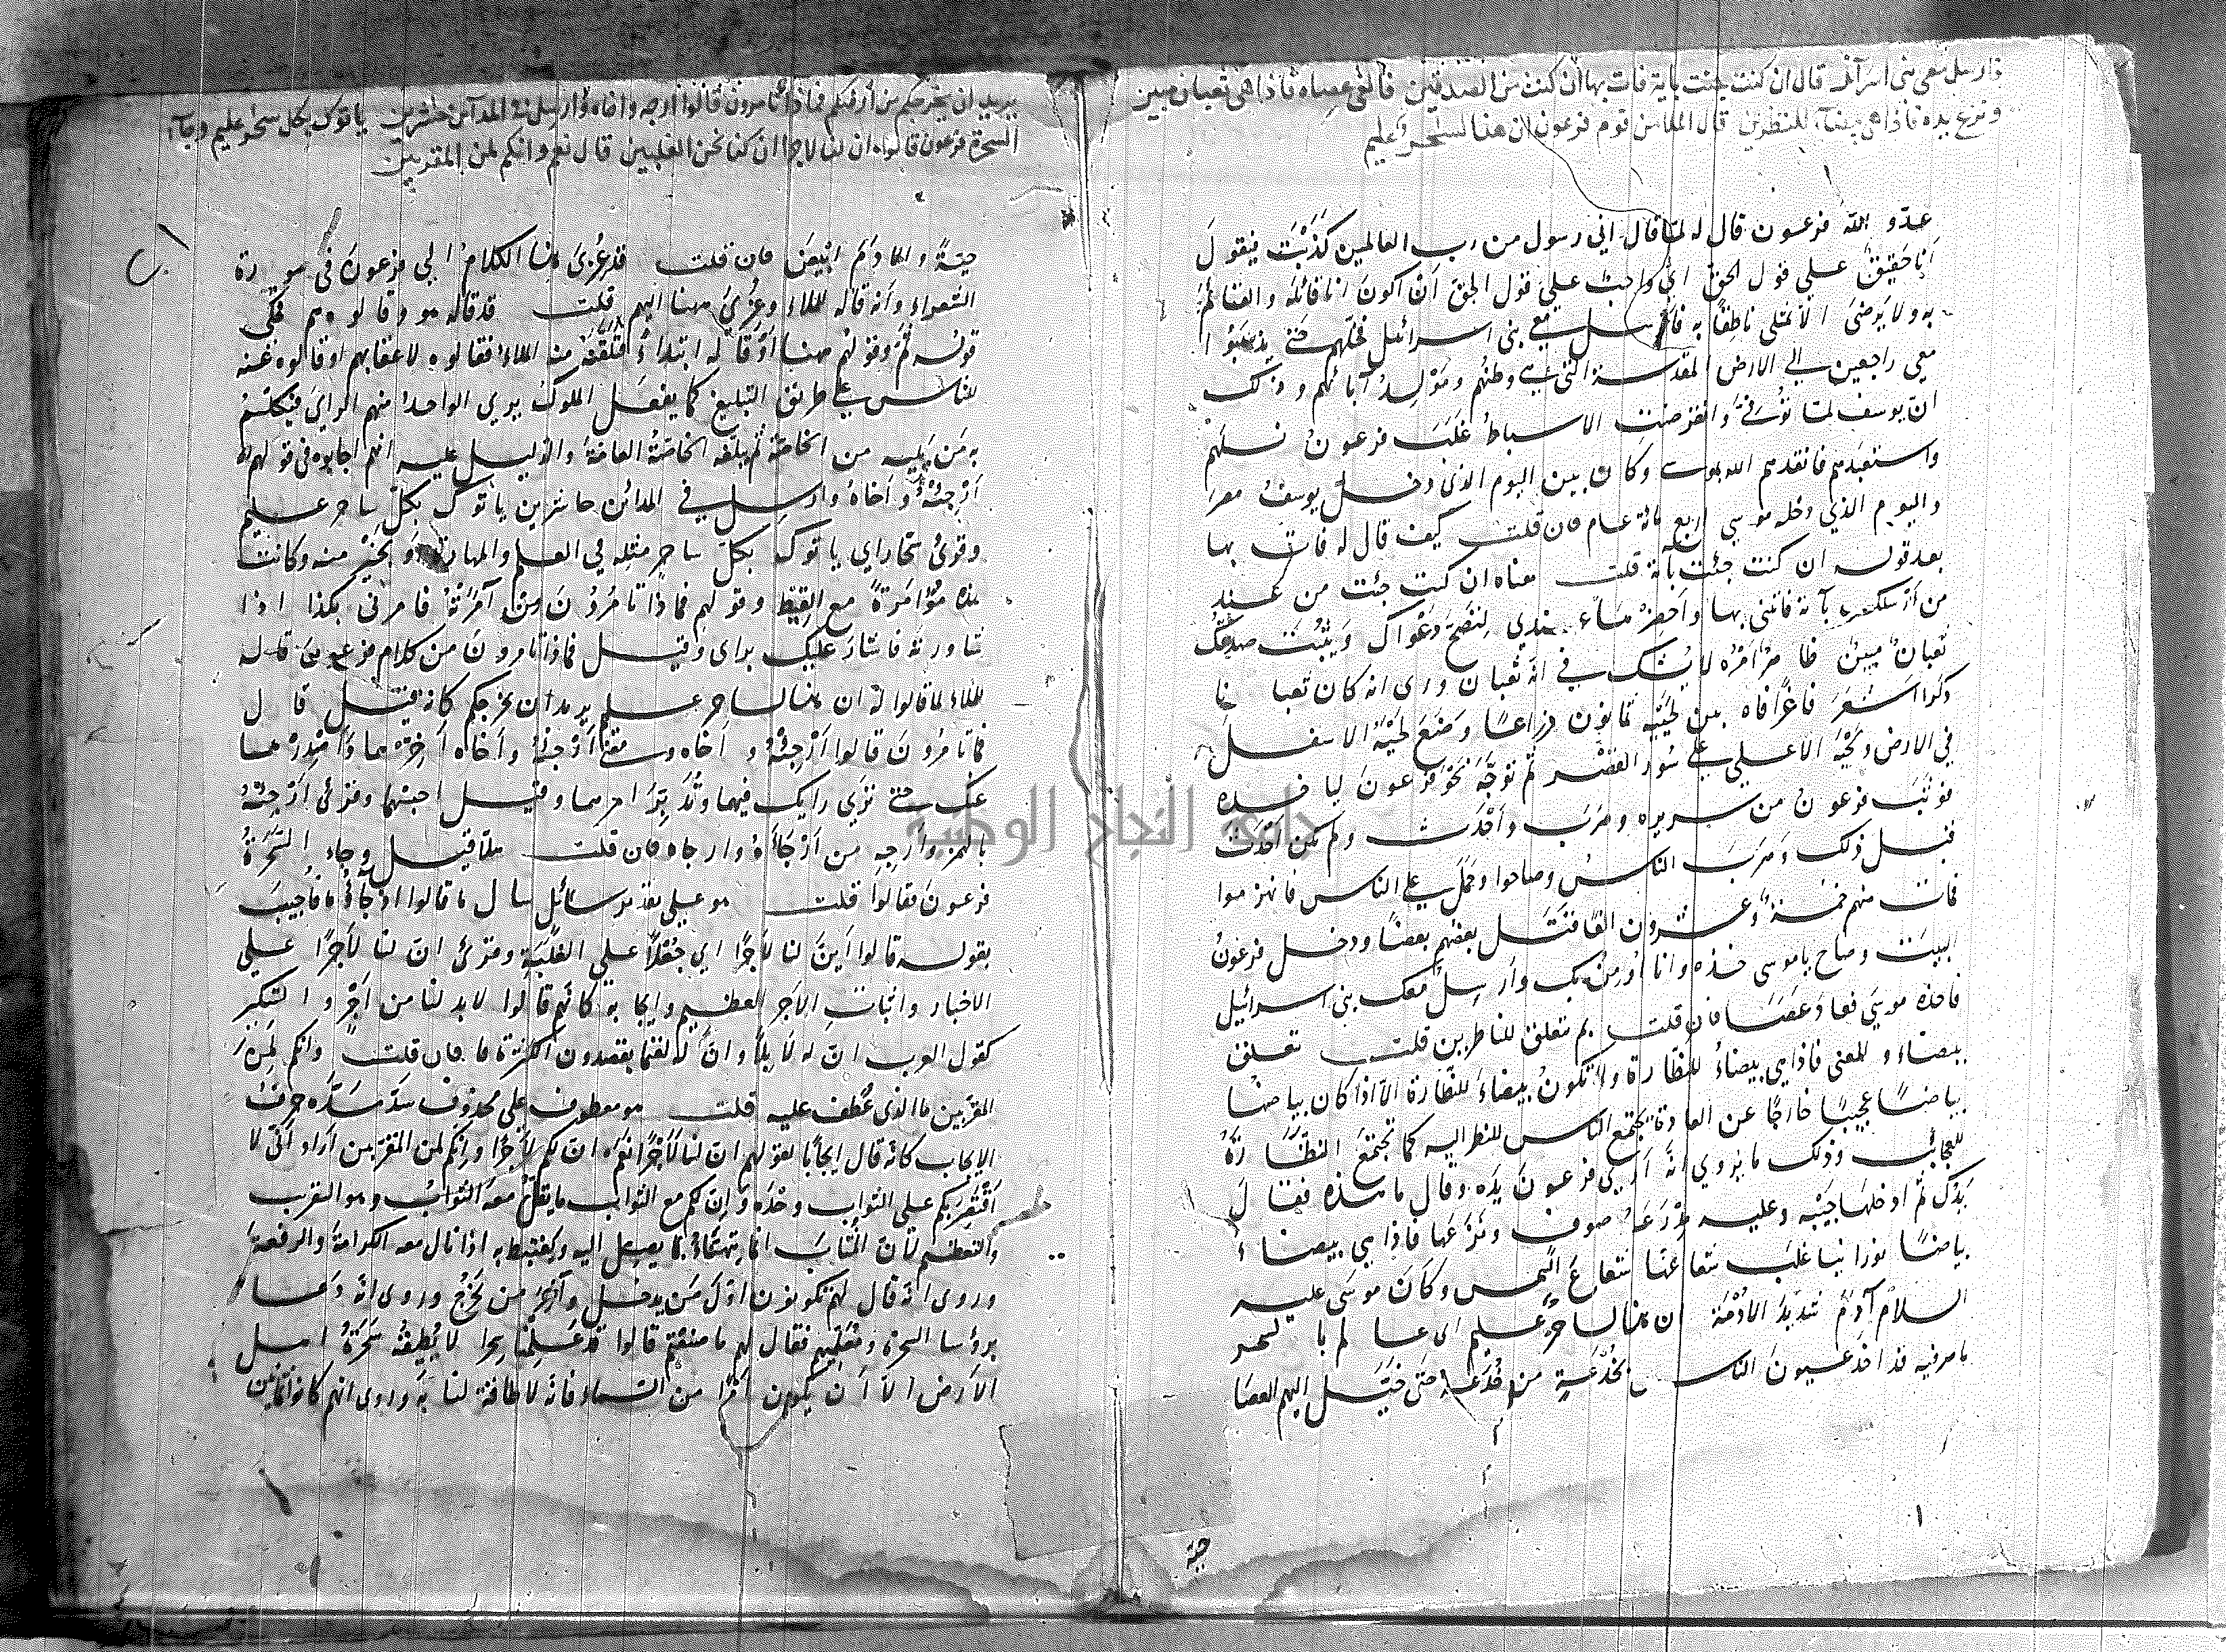 فارسل معي بني اسرآئل قال ان كنت جئت باية فات بها ان كنت من الصدقين فالقى عصاه فاذا هي ثعبان مبين
ونزع يده فاذا هي بيضآء للنظرين قال الملا من قوم فرعون ان هذا لسحر عليم
عدو الله فرعون قال له لما قال اني رسول من رب العالمين كذبت فيقول
انا حقيق على قول الحق اي واجب علي قول الحق ان اكون انا قائله والقائم
به ولا يرضى الا بمثلي ناطقا به فارسل معي بني اسرائيل فخلهم حتى يذهبوا
معي راجعين الى الارض المقدسة التي هي وطنهم ومولد آبائهم وذلك
ان يوسف لما توفي وانقرضت الاسباط غلب فرعون نسلهم
واستعبدهم فانقذهم الله بموسى وكان بين اليوم الذي دخل يوسف مصر
واليوم الذي دخله موسى اربع مائة عام فان قلت كيف قال له فات بها
بعد قوله ان كنت جئت بآية قلت معناه ان كنت جئت من عند
من ارسلك بآية فاتني بها واحضرها عندي لتصح دعواك ويثبت صدقك
ثعبان مبين ظاهر امره لا يشك في انه ثعبان وروى انه كان ثعبانا
ذكرا اشعر فاغرا فاه بين لحييه ثمانون ذراعا وضع لحيه الاسفل
في الارض ولحيه الاعلى على سور القصر ثم توجه نحو فرعون لياخذه
فوثب فرعون من سريره وهرب واحدث ولم يكن احدث
قبل ذلك وهرب الناس وصاحوا وحمل على الناس فانهزموا
فمات منهم خمسة وعشرون الفا قتل بعضهم بعضا ودخل فرعون
البيت وصاح يا موسى خذه وانا اومن بك وارسل معك بني اسرائيل
فاخذه موسى فعاد عصا فان قلت بم تعلق للناظرين قلت تعلق
ببيضاء والمعنى فاذا هي بيضاء للنظارة ولا تكون بيضاء للنظارة الا اذا كان بياضها
بياضا عجيبا خارجا عن العادة يجتمع الناس للنظر اليه كما تجتمع النظارة
للعجائب وذلك ما يروى انه ارى فرعون يده وقال ما هذه فقال
يدك ثم ادخلها جيبه وعليه مدرعة صوف ونزعها فاذا هي بيضاء
بياضا نورانيا غلب شعاعها شعاع الشمس وكان موسى عليه
السلام آدم شديد الادمة ان هذا لساحر عليم اي عالم بالسحر
ماهر فيه قد اخذ عيون الناس بخدعة من خدعه حتى خيل اليهم العصا
حية
يريد ان يخرجكم من ارضكم فماذا تامرون قالوا ارجه واخاه وارسل في المدآئن حشرين ياتوك بكل سحر عليم وجآء
السحرة فرعون قالوا ان لنا لاجرا ان كنا نحن الغلبين قال نعم وانكم لمن المقربين
حية والآدم ابيض فان قلت قد عزي هذا الكلام الى فرعون في سورة
الشعراء وانه قاله للملاء وعزي ههنا اليهم قلت قد قاله هو وقالوه هم فحكى
قوله ثم وقولهم ههنا او قاله ابتداء فتلقفه منه الملاء فقالوه لاعقابهم او قالوه عنه
للناس على طريق التبليغ كما يفعل الملوك يرى الواحد منهم الراي فيكلم
به من يليه من الخاصة ثم تبلغه الخاصة العامة والدليل عليه انهم اجابوه في قولهم
ارجئه واخاه وارسل في المدائن حاشرين ياتوك بكل ساحر عليم
وقرئ سحار اي ياتوك بكل ساحر مثله في العلم والمهارة او بخير منه وكانت
هذه مؤامرة مع القبط وقولهم فماذا تامرون من آمرته فامرني بكذا اذا
شاورته فاشار عليك براى وقيل فماذا تامرون من كلام فرعون قاله
للملاء لما قالوا له ان هذا لساحر عليم يريد ان يخرجكم كانه قيل قال
فماتامرون قالوا ارجئه واخاه ومعنى ارجئه واخاه اخرهما واصدرهما
عنك حتى ترى رايك فيهما وتدبر امرهما وقيل احبسهما وقرئ ارجئه
بالهمز وارجه من ارجأه وارجاه فان قلت هلا قيل وجاء السحرة
فرعون فقالوا قلت هو على تقدير سائل سال ما قالوا اذ جآؤه فاجيب
بقوله قالوا اين لنا لاجرا اي جعلا على الغلبة وقرئ ان لنا لاجرا على
الاخبار واثبات الاجر العظيم وايجابه كانهم قالوا لا بد لنا من اجر والتنكير
كقول العرب ان له لابلا وان له لغنما يقصدون الكثرة فان قلت وانكم لمن
المقربين ما الذي عطف عليه قلت هو معطوف على محذوف سد مسده حرف
الايجاب كانه قال ايجابا لقولهم ان لنا لاجرا نعم ان لكم لاجرا وانكم لمن المقربين اراد اني لا
اقتصر بكم على الثواب وحده وان لكم مع الثواب ما يقل معه الثواب وهو التقريب
والتعظيم لان المثاب انما يتهنأ بما يصل اليه ويغتبط به اذا نال معه الكرامة والرفعة
وروى انه قال لهم تكونون اول من يدخل وآخر من يخرج وروى انه دعا
برؤسا السحرة ومعلميهم فقال لهم ما صنعتم قالوا قد علمنا سحرا لا يطيقه سحرة اهل
الارض الا ان يكون امرا من السماء فانه لا طاقة لنا به وروى انهم كانوا ثمانين
جامعة النجاح الوطنية